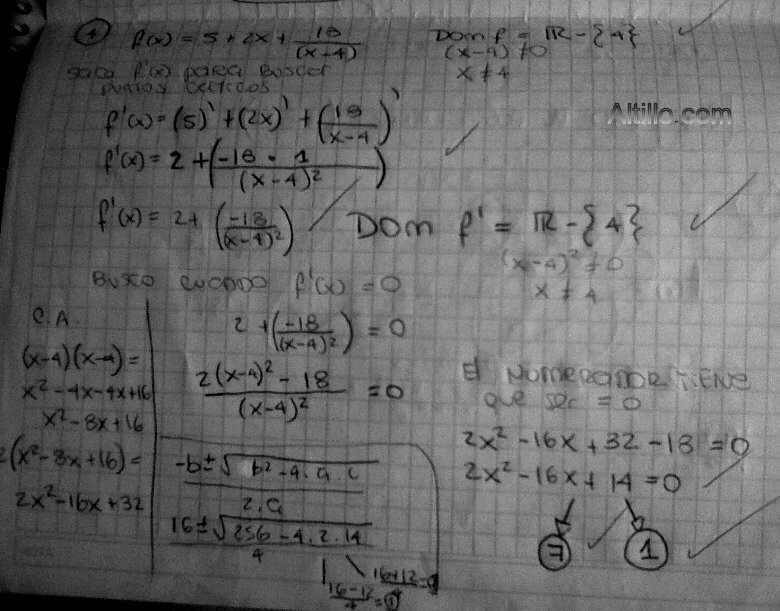 ① f(x) = 5 + 2x + 18/(x-4)
Dom f = ℝ - {4}
(x-4) ≠ 0
x ≠ 4
saco f'(x) para buscar
puntos criticos
Altillo.com
f'(x) = (5)' + (2x)' + (18/(x-4))'
f'(x) = 2 + (-18 · 1/(x-4)²)
f'(x) = 2 + (-18/(x-4)²)
DOM f' = ℝ - {4}
(x-4)² ≠ 0
x ≠ 4
BUSCO CUANDO f'(x) = 0
C.A.
(x-4)(x-4) =
x² - 4x - 4x + 16
x² - 8x + 16
2(x² - 8x + 16) =
2x² - 16x + 32
2 + (-18/(x-4)²) = 0
2(x-4)² - 18/(x-4)² = 0
El NUMERADOR TIENE
que ser = 0
2x² - 16x + 32 - 18 = 0
2x² - 16x + 14 = 0
7 1
-b ± √b² - 4.a.c
2.a
16 ± √256 - 4.2.14
4
16-12/4 = 1